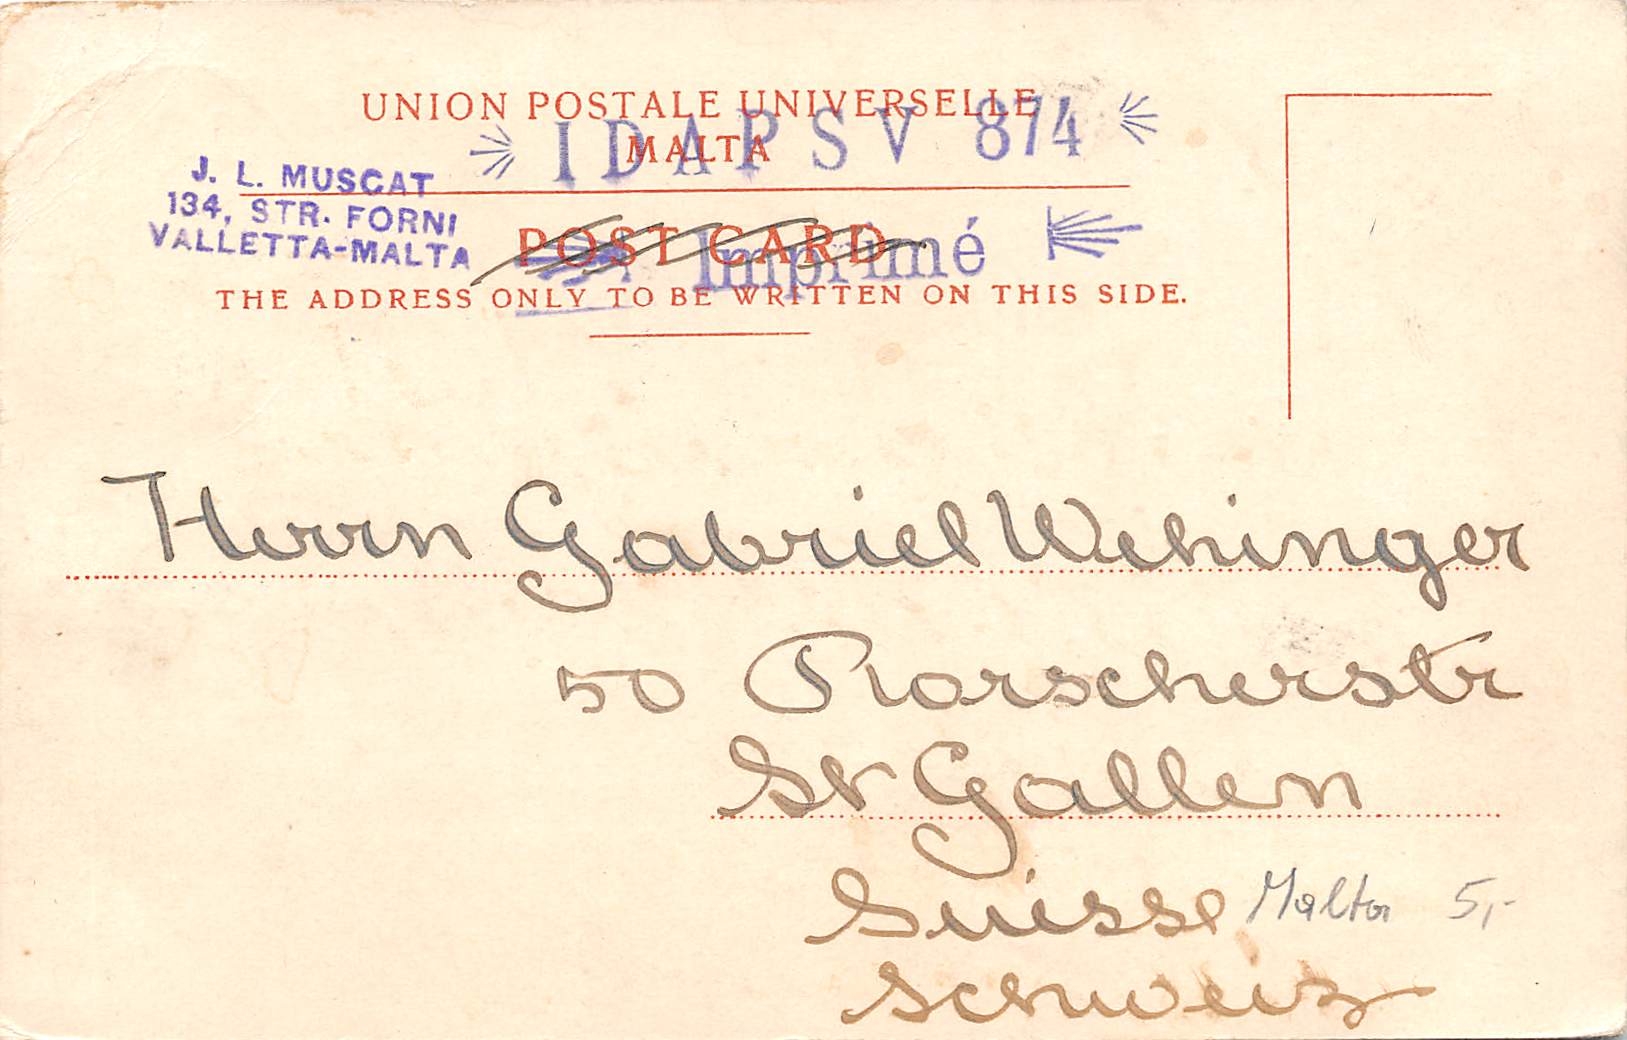 UNION POSTALE UNIVERSELLE
MALTA
I D A P S V 874
J. L. MUSCAT
134, STR. FORNI
VALLETTA-MALTA
POST CARD
Imprimé
THE ADDRESS ONLY TO BE WRITTEN ON THIS SIDE.
Herrn Gabriel Wehinger
50 Rorscherstr
St Gallen
Suisse
Malta 5,-
Schweiz